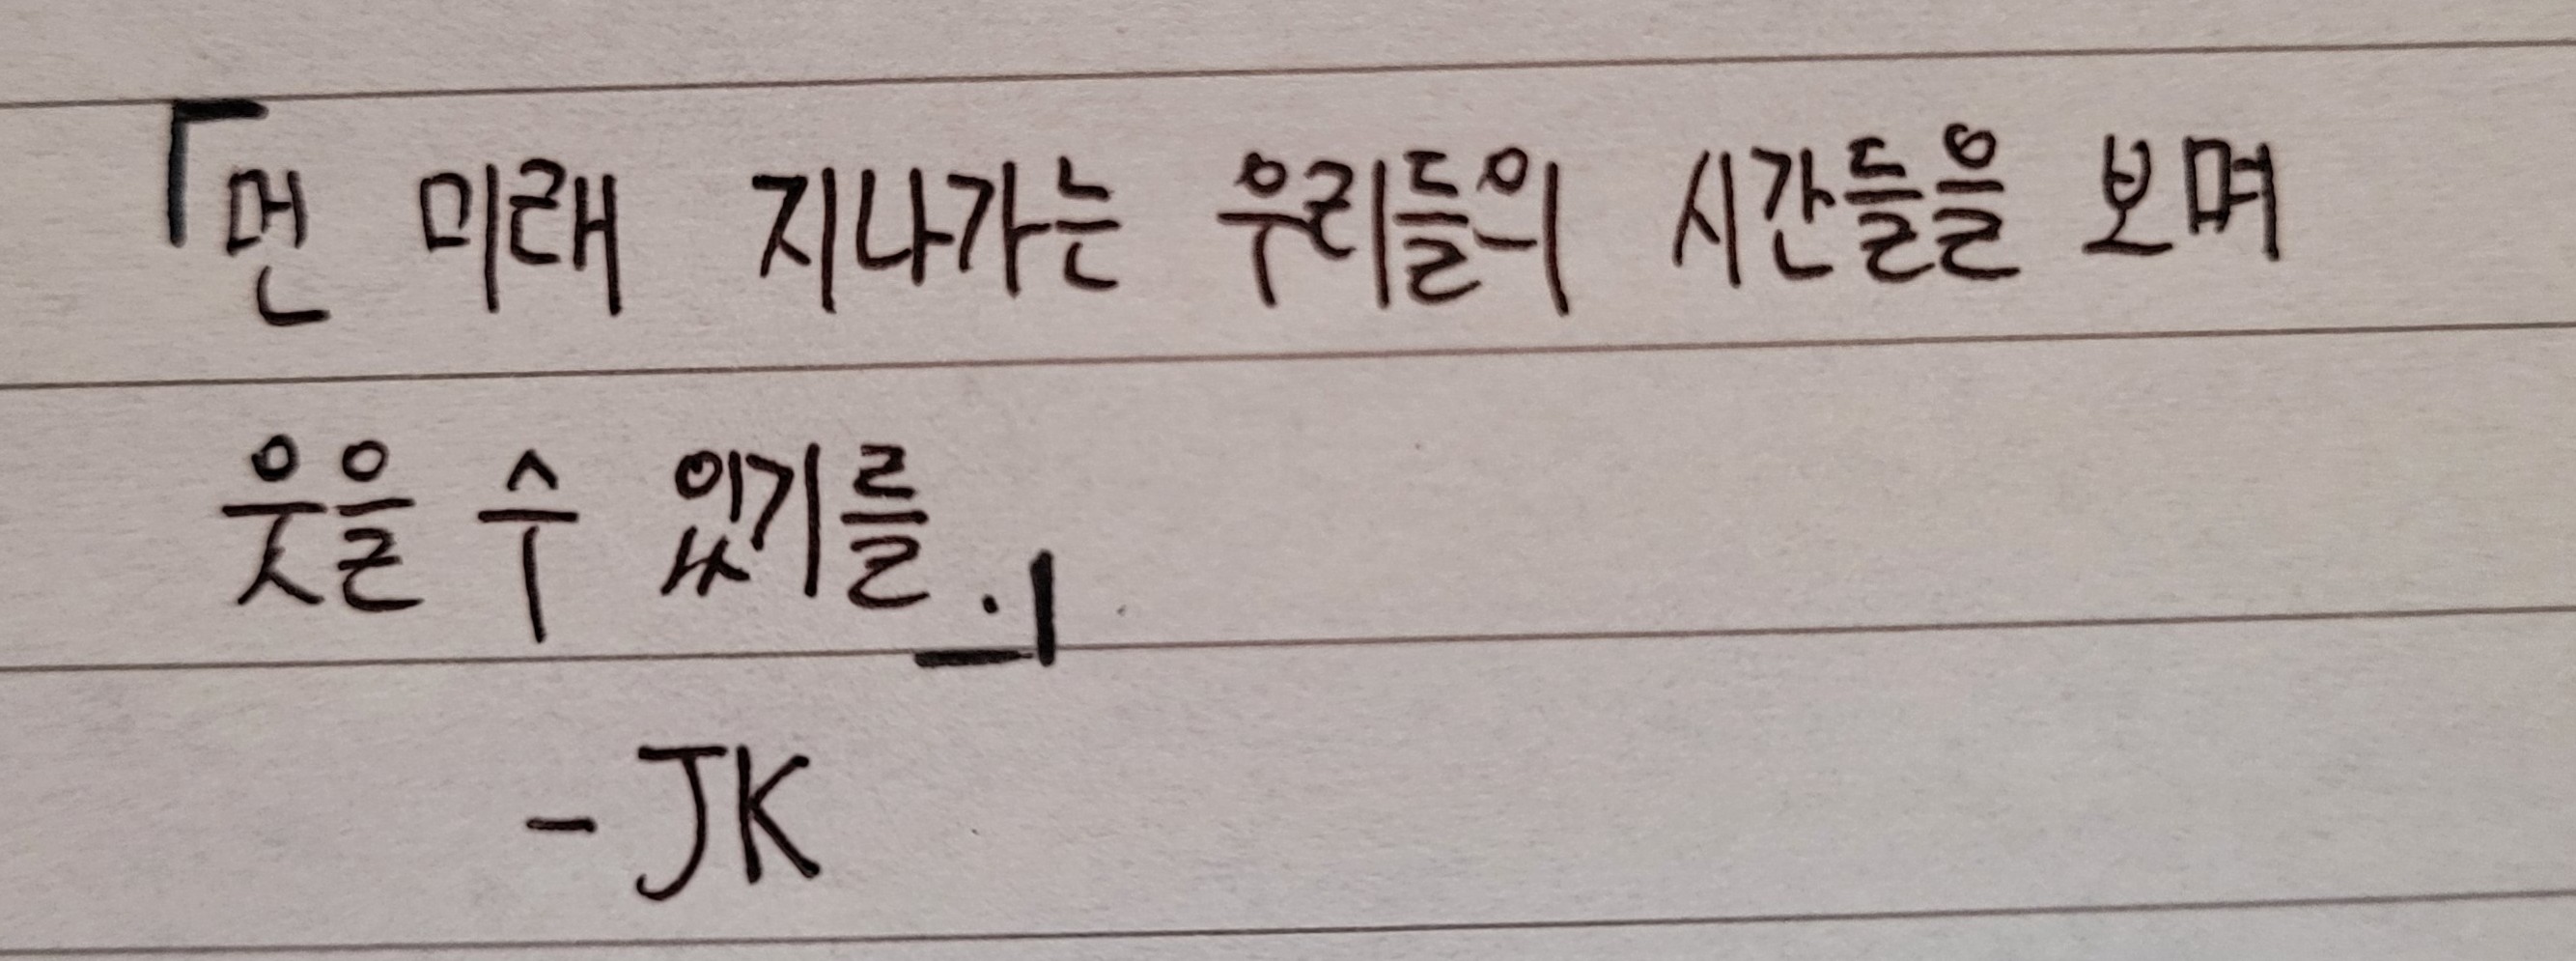 「먼 미래 지나가는 우리들의 시간들을 보며
웃을 수 있기를.」
-JK